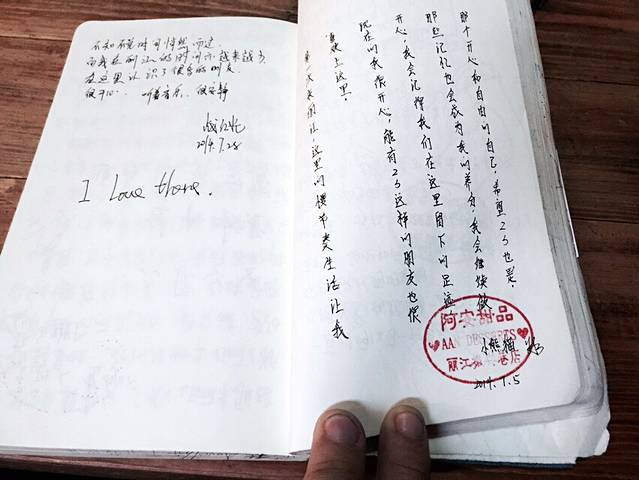 不知不觉时间悄然而逝
而我在丽江的时间也越来越少
在这里认识了很多的朋友
很开心. 听着音乐, 很安静
2014.7.28
I Love there.
第一次来丽江, 这里的慢节奏生活让我
喜欢上这里.
现在的我很开心, 能有23这样的朋友也很
开心, 我会记得我们在这里留下的足迹
那些记忆也会成为我的养分, 我会继续做
那个开心和自由的自己, 希望23也是.
阿安甜品
AAN DESSERTS
丽江 店
小熊猫
2014.7.5